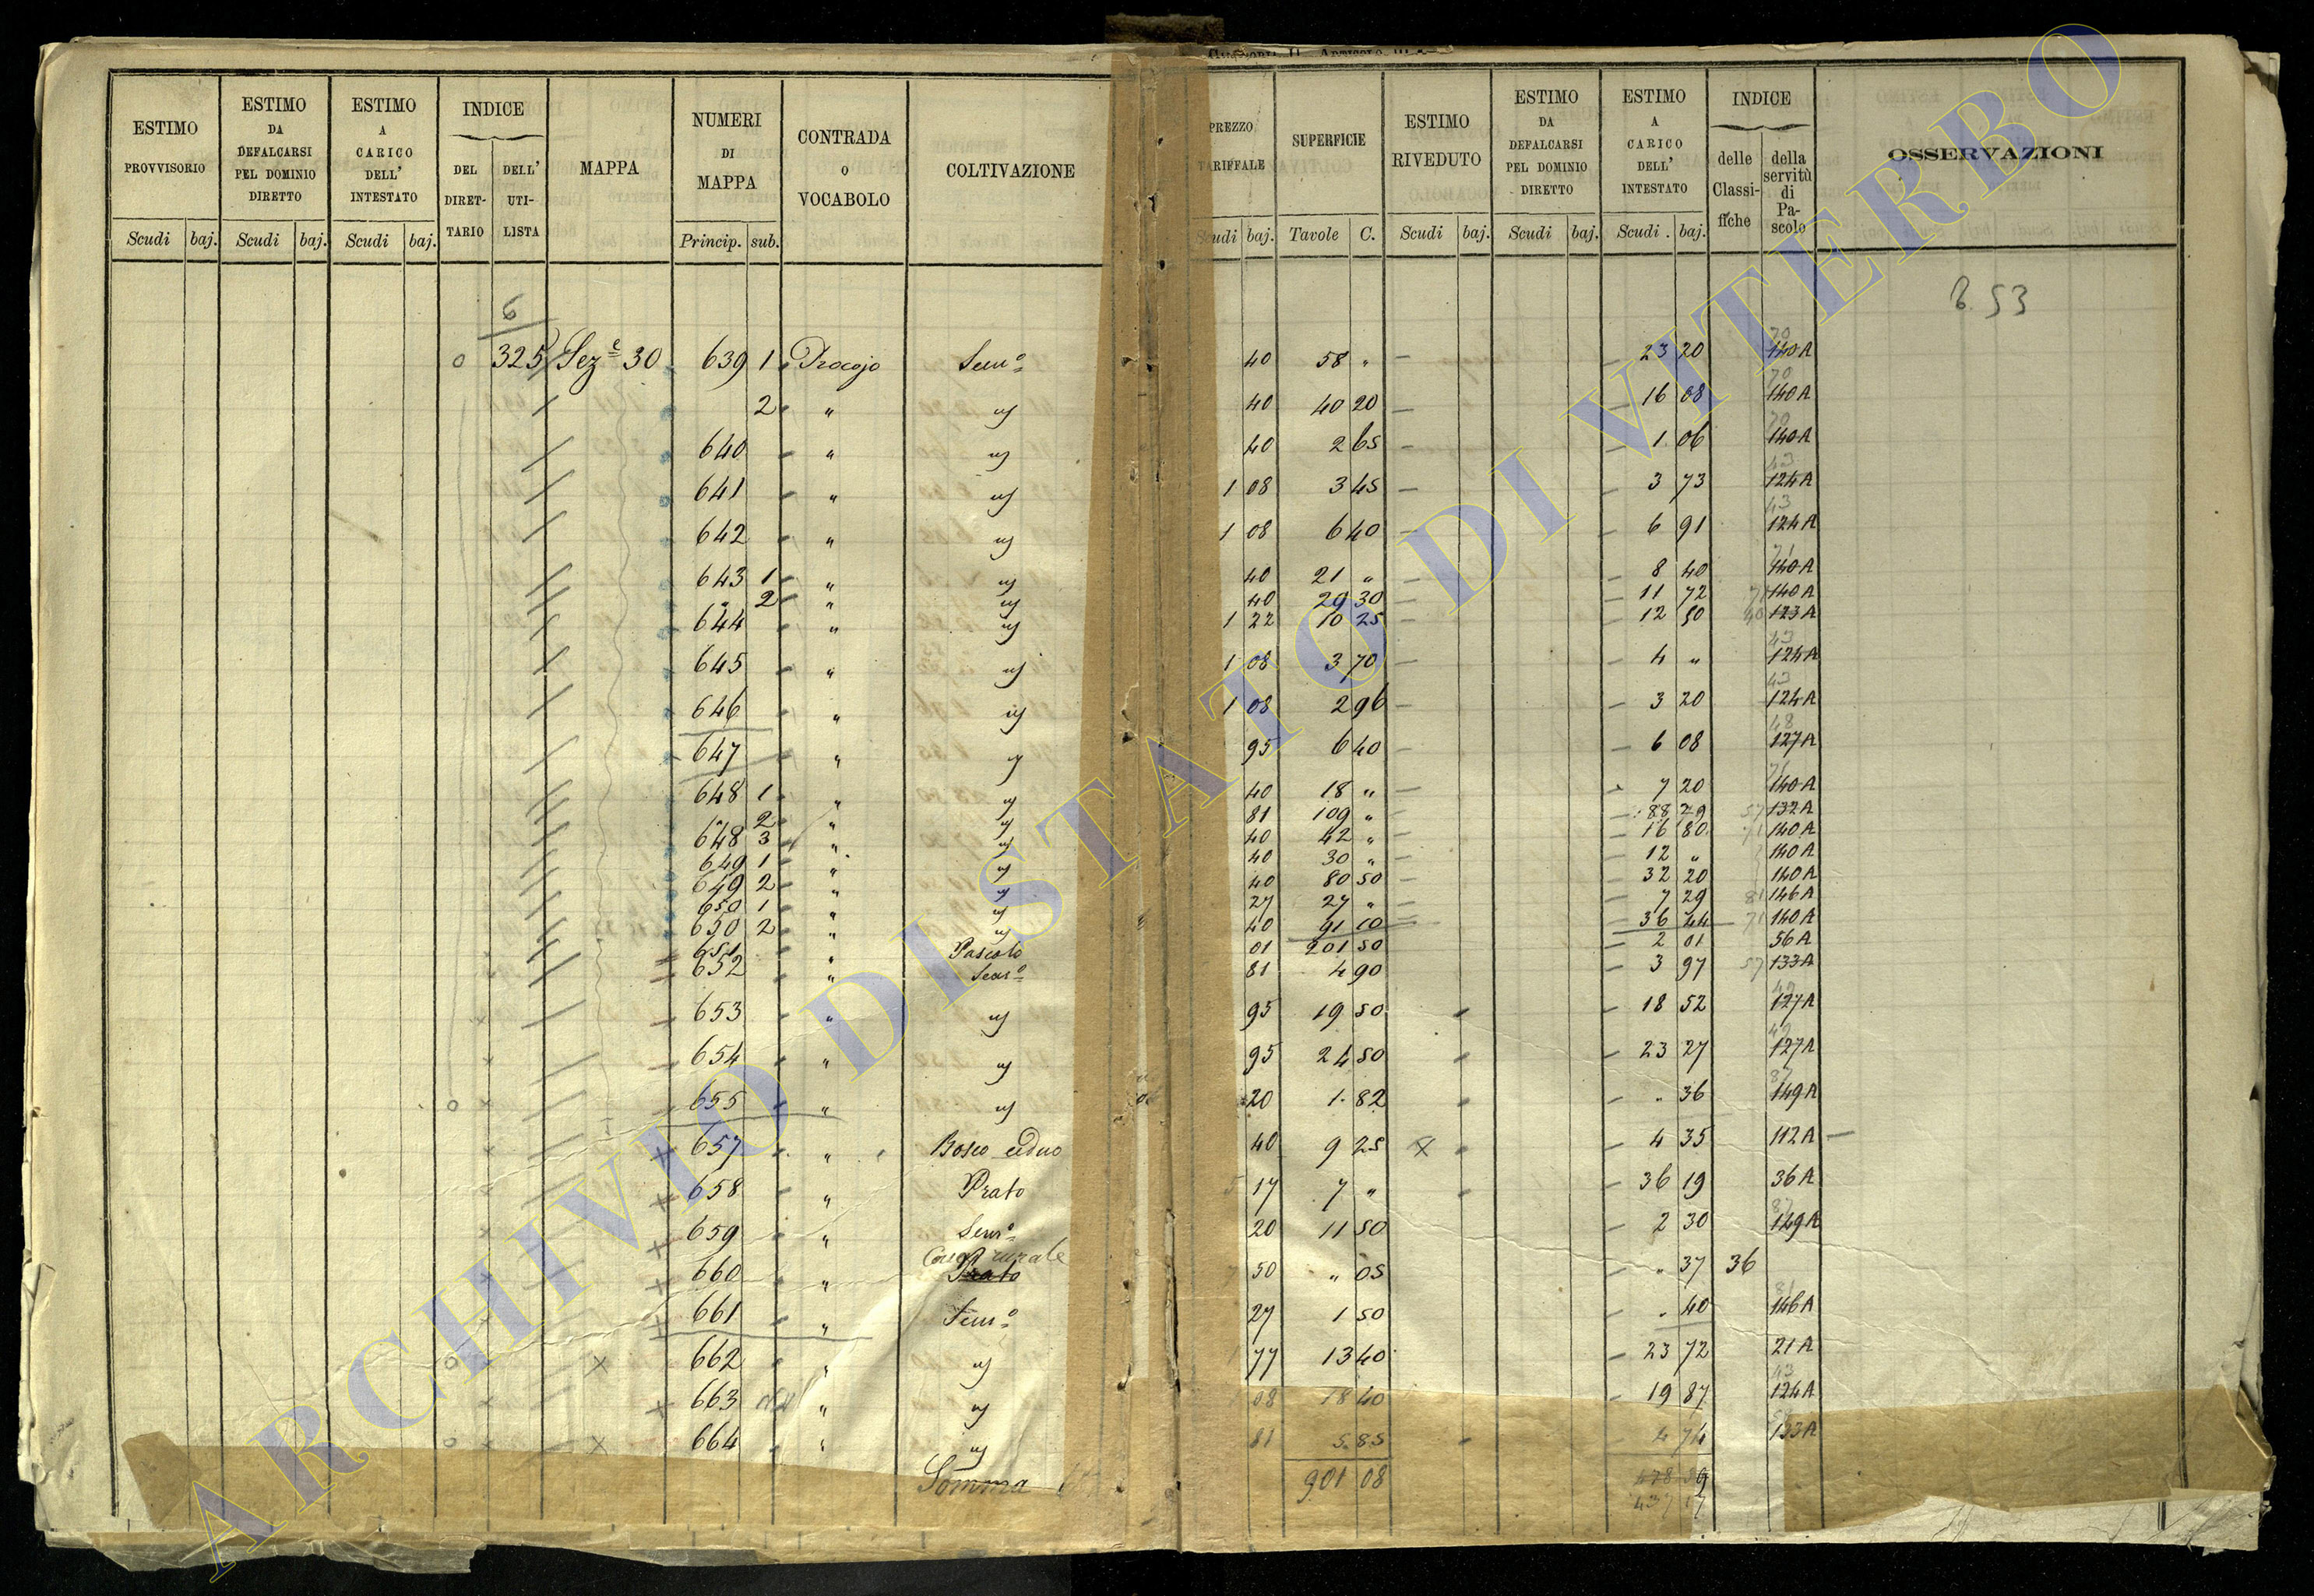 ESTIMO PROVVISORIO Scudi baj.
ESTIMO DA DEFALCARSI PEL DOMINIO DIRETTO Scudi baj.
ESTIMO A CARICO DELL' INTESTATO Scudi baj.
INDICE DEL DIRET-TARIO DELL' UTI-LISTA
MAPPA
NUMERI DI MAPPA Princip. sub.
CONTRADA O VOCABOLO
COLTIVAZIONE
PREZZO TARIFFALE Scudi baj.
SUPERFICIE Tavole C.
ESTIMO RIVEDUTO Scudi baj.
ESTIMO DA DEFALCARSI PEL DOMINIO DIRETTO Scudi baj.
ESTIMO A CARICO DELL' INTESTATO Scudi. baj.
INDICE delle Classi-fiche della servitù di Pa-scolo
OSSERVAZIONI
6
653
325 Seze 30 639 1 Procojo Semo 40 58 " 23 20 70 140A
2 " " 40 40 20 16 08 70 140A
640 " " 40 2 65 1 06 70 140A
641 " " 1 08 3 45 3 73 43 124A
642 " " 1 08 6 40 6 91 43 124A
643 1 " " 40 21 " 8 40 71 140A
" 2 " " 40 29 30 11 72 71 140A
644 " " 1 22 10 25 12 50 40 123A
645 " " 1 08 3 70 4 " 43 124A
646 " " 1 08 2 96 3 20 43 124A
647 " " 95 6 40 6 08 48 127A
648 1 " " 40 18 " 7 20 71 140A
" 2 " " 81 109 " 88 29 57 132A
648 3 " " 40 42 " 16 80 71 140A
649 1 " " 40 30 " 12 " 140A
649 2 " " 40 80 50 32 20 140A
650 1 " " 27 27 " 7 29 81 146A
650 2 " " 40 91 10 36 44 71 140A
651 " Pascolo 01 201 50 2 01 56A
652 " Semo 81 4 90 3 97 57 133A
653 " " 95 19 50 18 52 49 127A
654 " " 95 24 50 23 27 49 127A
655 " " 20 1.82 " 36 87 149A
657 " Bosco ceduo 40 9 25 4 35 112A
658 " Prato 5 17 7 " 36 19 36A
659 " Semo 20 11 50 2 30 87 149A
Casa rurale
660 " Prato 50 " 05 " 37 36
661 " Semo 27 1 50 " 40 81 146A
662 " " 77 13 40 23 72 21A
663 " " 08 18 40 19 87 43 124A
664 " " 81 5.85 4 74 133A
Somma 901 08
ARCHIVIO DI STATO DI VITERBO